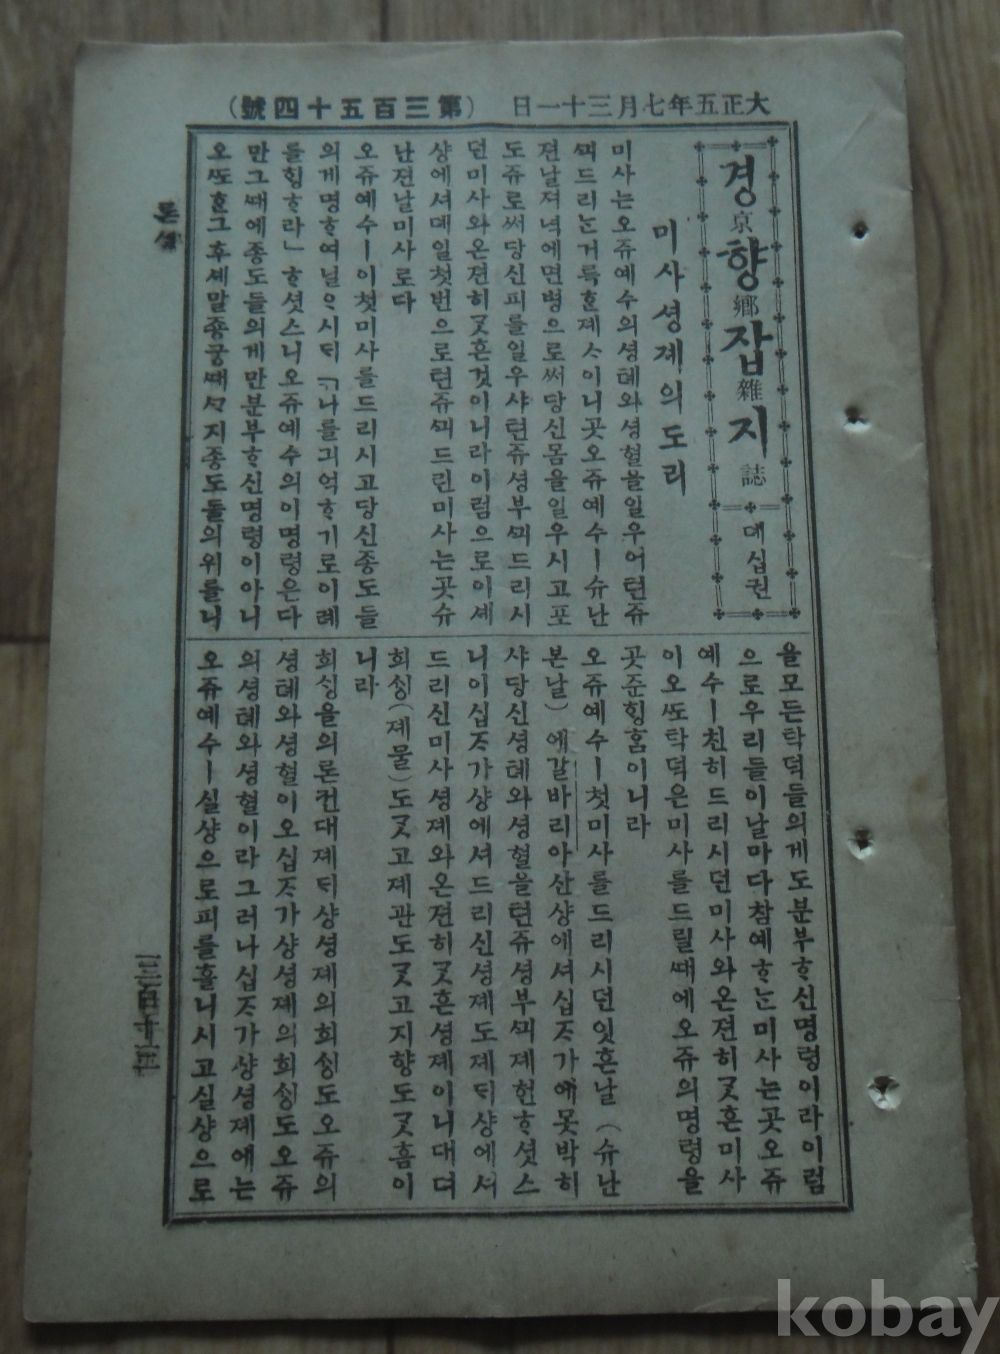 大正五年七月三十一日 (第三百五十四號)
경京향鄕잡雜지誌 뎨십권
미사셩졔의도리
미사는오쥬예수의셩톄와셩혈을일우어텬쥬
ᄭᅴ드리ᄂᆞᆫ거륵ᄒᆞᆫ졔ᄉᆞ이니곳오쥬예수ㅣ슈난
젼날져녁에면병으로써당신몸을일우시고포
도쥬로써당신피를일우샤텬쥬셩부ᄭᅴ드리시
던미사와온젼히ᄀᆞᆺᄒᆞᆫ것이니라이럼으로이셰
샹에셔뎨일첫번으로텬쥬ᄭᅴ드린미사는곳슈
난젼날미사로다
오쥬예수ㅣ이첫미사를드리시고당신종도들
의게명ᄒᆞ여닐ᄋᆞ시ᄃᆡ「나를긔억ᄒᆞ기로이례
를ᄒᆡᆼᄒᆞ라」ᄒᆞ셧스니오쥬예수의이명령은다
만그ᄯᅢ에종도들의게만분부ᄒᆞ신명령이아니
오ᄯᅩᄒᆞᆫ그후셰말죵궁ᄯᅢᄭᆞ지종도들의위를니
을모든탁덕들의게도분부ᄒᆞ신명령이라이럼
으로우리들이날마다참예ᄒᆞᄂᆞᆫ미사는곳오쥬
예수ㅣ친히드리시던미사와온젼히ᄀᆞᆺᄒᆞᆫ미사
이오ᄯᅩ탁덕은미사를드릴ᄯᅢ에오쥬의명령을
곳준ᄒᆡᆼᄒᆞᆷ이니라
오쥬예수ㅣ첫미사를드리시던잇흔날(슈난
본날)에갈바리아산샹에셔십ᄌᆞ가에못박히
샤당신셩톄와셩혈을텬쥬셩부ᄭᅴ졔헌ᄒᆞ셧스
니이십ᄌᆞ가샹에셔드리신셩졔도졔ᄃᆡ샹에셔
드리신미사셩졔와온젼히ᄀᆞᆺᄒᆞᆫ셩졔이니대뎌
희ᄉᆡᆼ(졔물)도ᄀᆞᆺ고졔관도ᄀᆞᆺ고지향도ᄀᆞᆺᄒᆞᆷ이
니라
희ᄉᆡᆼ을의론컨대졔ᄃᆡ샹셩졔의희ᄉᆡᆼ도오쥬의
셩톄와셩혈이오십ᄌᆞ가샹셩졔의희ᄉᆡᆼ도오쥬
의셩톄와셩혈이라그러나십ᄌᆞ가샹셩졔에는
오쥬예수ㅣ실샹으로피를흘니시고실샹으로
론셜
kobay